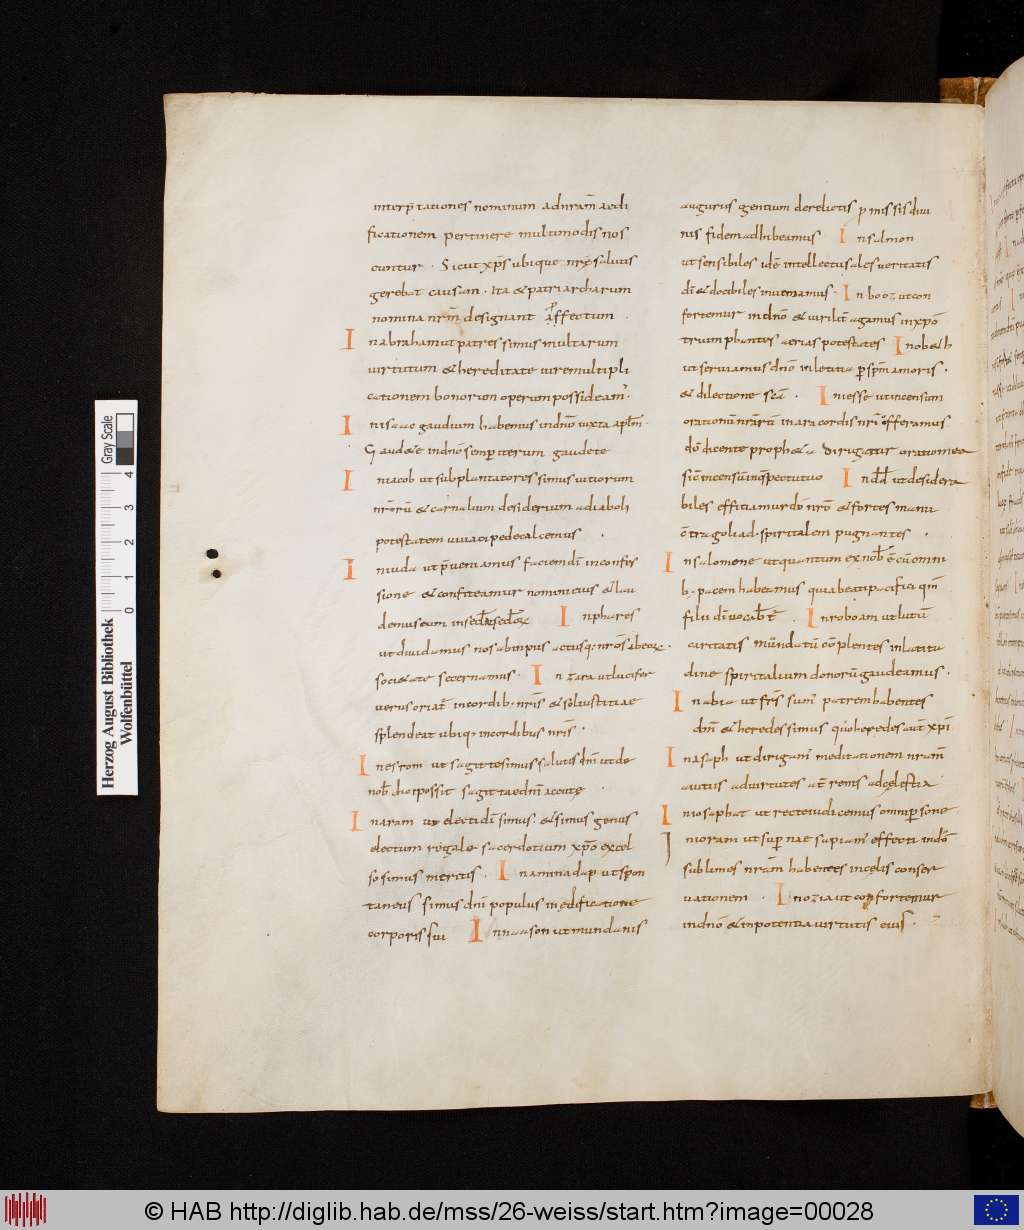 interp̄tationes nominum ad nr̄am aedi
ficationem pertinere multimodis nos
cuntur. Sicut xp̄s ubique nr̄ę salutis
gerebat causam. Ita & patriarcharum
nomina nr̄m designant affectum.
In abraham ut patres simus multarum
uirtutum & hereditate uiremultipli
cationem bonorum operum possideam'.
In isaac gaudium habemus in dn̄o iuxta apl̄m.
Gaudete in dn̄o semper iterum gaudete
In iacob ut subplantatores simus uitiorum
nr̄orū & carnalium desiderium a diaboli
potestatem uiuaci pede calcemus.
In iuda ut p̄ueniamus faciem dī in confes
sione & confiteamur nomini eius & lau
demus eum in In phares
ut diuidamus nos ab inpus actusq; nr̄os ab eoꝝ.
societate secernamus. In zara ut lucifer
uerus oriat̄ in cordib; nr̄is & sol iustitiae
splendeat ubiq; in cordibus nr̄is.
In esrom ut sagittę simus salutis dn̄i ut de
nob̄ dici possit sagittae dn̄i acutę.
In aram ut electi dī simus. & simus genus
electum regale sacerdotium xp̄o excel
so simus meritis. In aminadap ut spon
taneus simus dn̄i populus in edificatione
corporis sui In naason ut mundanis
auguriis gentium derelictis p̄missis diui
nis fidem adhibeamus In salmon
ut sensibiles idē intellectuales ueritatis
dī & docibiles inueniamus. In booz ut con
fortemur in dn̄o & uirilit̄ agamus in xp̄o
triumphantes aerias potestates In obeth
ut seruiamus dn̄o in letitia ꝑ sp̄m amoris.
& dilectione sc̄a. In iesse ut incensum
orationū nr̄arū in ara cordis nr̄i offeramus
dō dicente propheta dirigatur oratio mea
sic̄ incensū in c̄spectu tuo In dd̄ ut desidera
biles efficiamur dō nr̄o & fortes manu
c̄tra goliad. spiritalem pugnantes.
In salomone ut quantum ex nob̄ ē cū omni
b; pacem habeamus quia beati pacifici qm̄
filii dī uocab̄t̄ In roboam ut lutū
caritatis mūndatū cōplentes in latitu
dine spiritalium donorū gaudeamus.
In abia ut fr̄s sum' patrem habentes
dm̄ & heredes simus quoheredes aut̄ xp̄i
In asaph ut dirigam' meditationem nr̄am
a uitiis ad uirtutes a t̄renis ad celestia.
In iosaphat ut recte iudicemus omni ꝑsone
In ioram ut supernae sapiam' effecti in dō
sublimes nr̄am habentes in cęlis conser
uationem. In ozia ut confortemur
in dn̄o & in potentia uirtutis eius.
Gray Scale
4 3 2 1 0
Herzog August Bibliothek
Wolfenbüttel
© HAB http://diglib.hab.de/mss/26-weiss/start.htm?image=00028